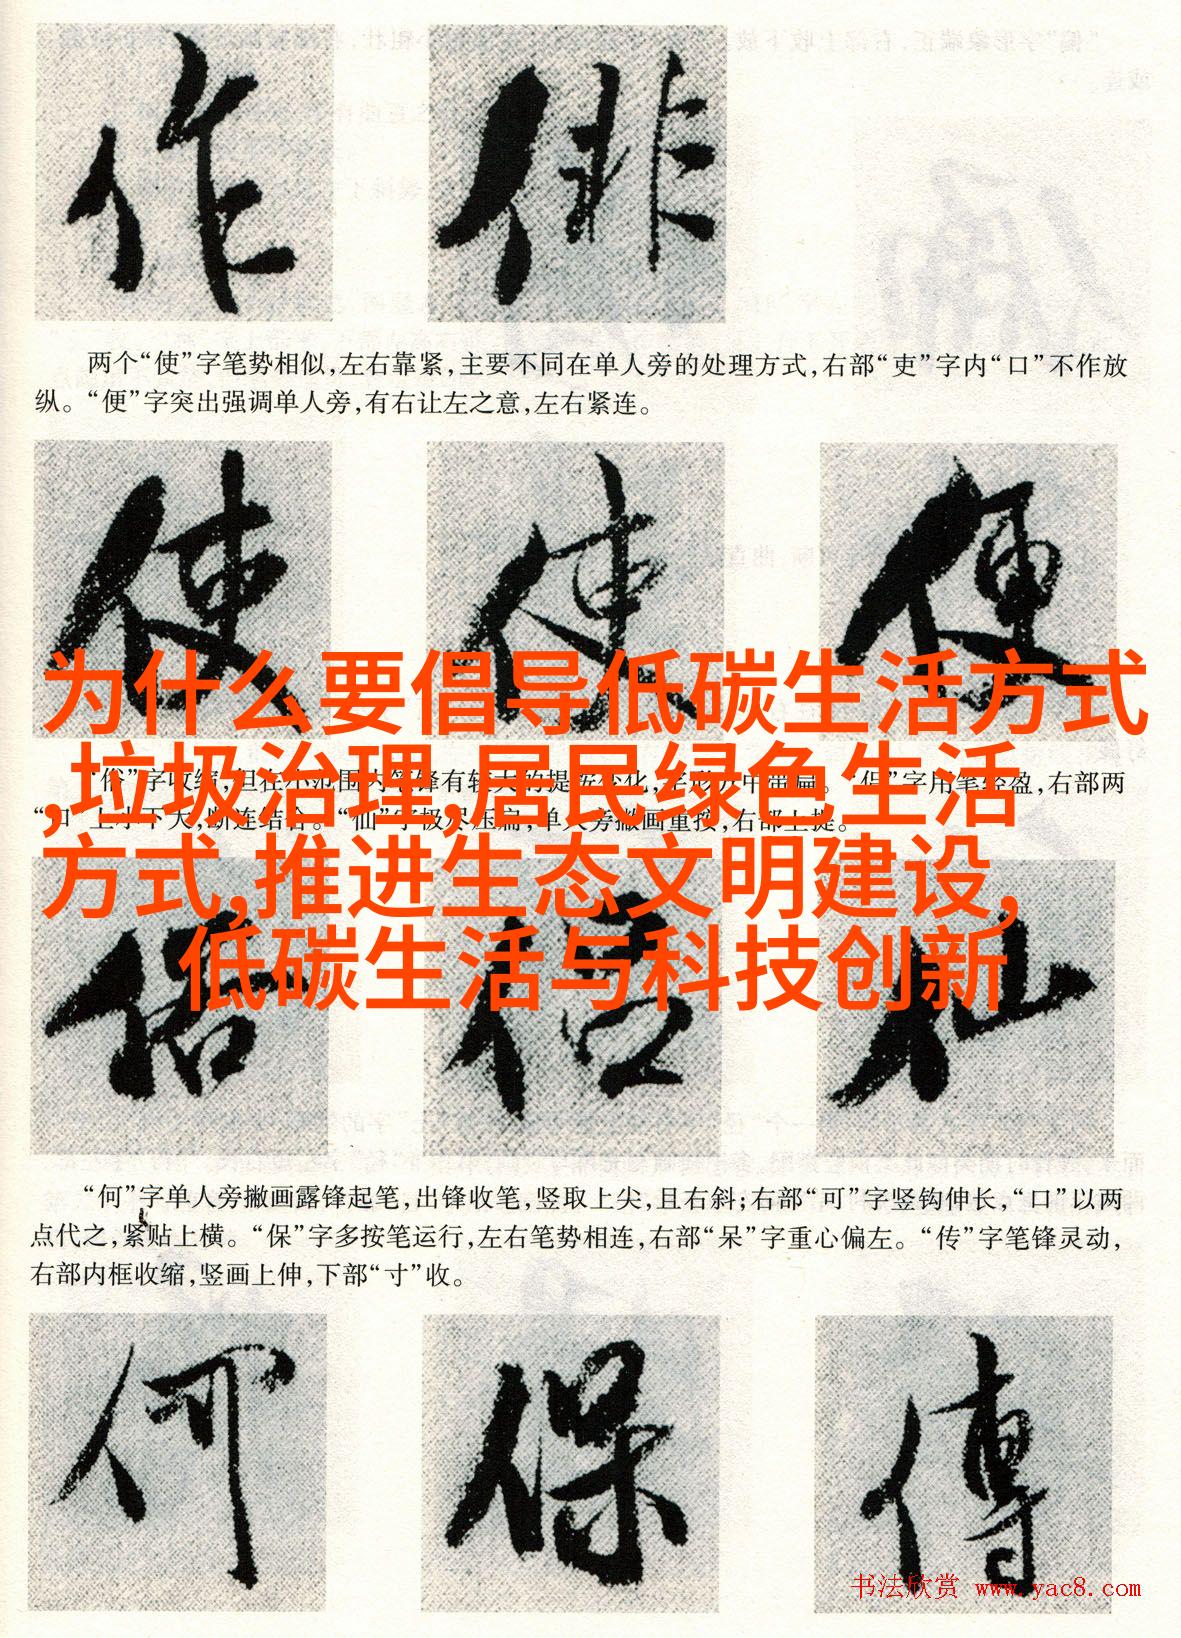 作 俳
两个“使”字笔势相似,左右靠紧,主要不同在单人旁的处理方式,右部“吏”字内“口”不作放
纵。“便”字突出强调单人旁,有右让左之意,左右紧连。
使 使 便
为什么要倡导低碳生活方式
,垃圾治理,居民绿色生活
方式,推进生态文明建设,
低碳生活与科技创新
“俗”字收缩,但在小范围内笔锋有较大的提按变化,字形
字用笔轻盈,右部两
“口”上小下大,断连结合。“仙”字极尽压扁,单人旁撇画重按,右部上提。
俗 信 仙
“何”字单人旁撇画露锋起笔,出锋收笔,竖取上尖,且右斜;右部“可”字竖钩伸长,“口”以两
点代之,紧贴上横。“保”字多按笔运行,左右笔势相连,右部“呆”字重心偏左。“传”字笔锋灵动,
右部内框收缩,竖画上伸,下部“寸”收。
何 保 傳
书法欣赏 www.yac8.com